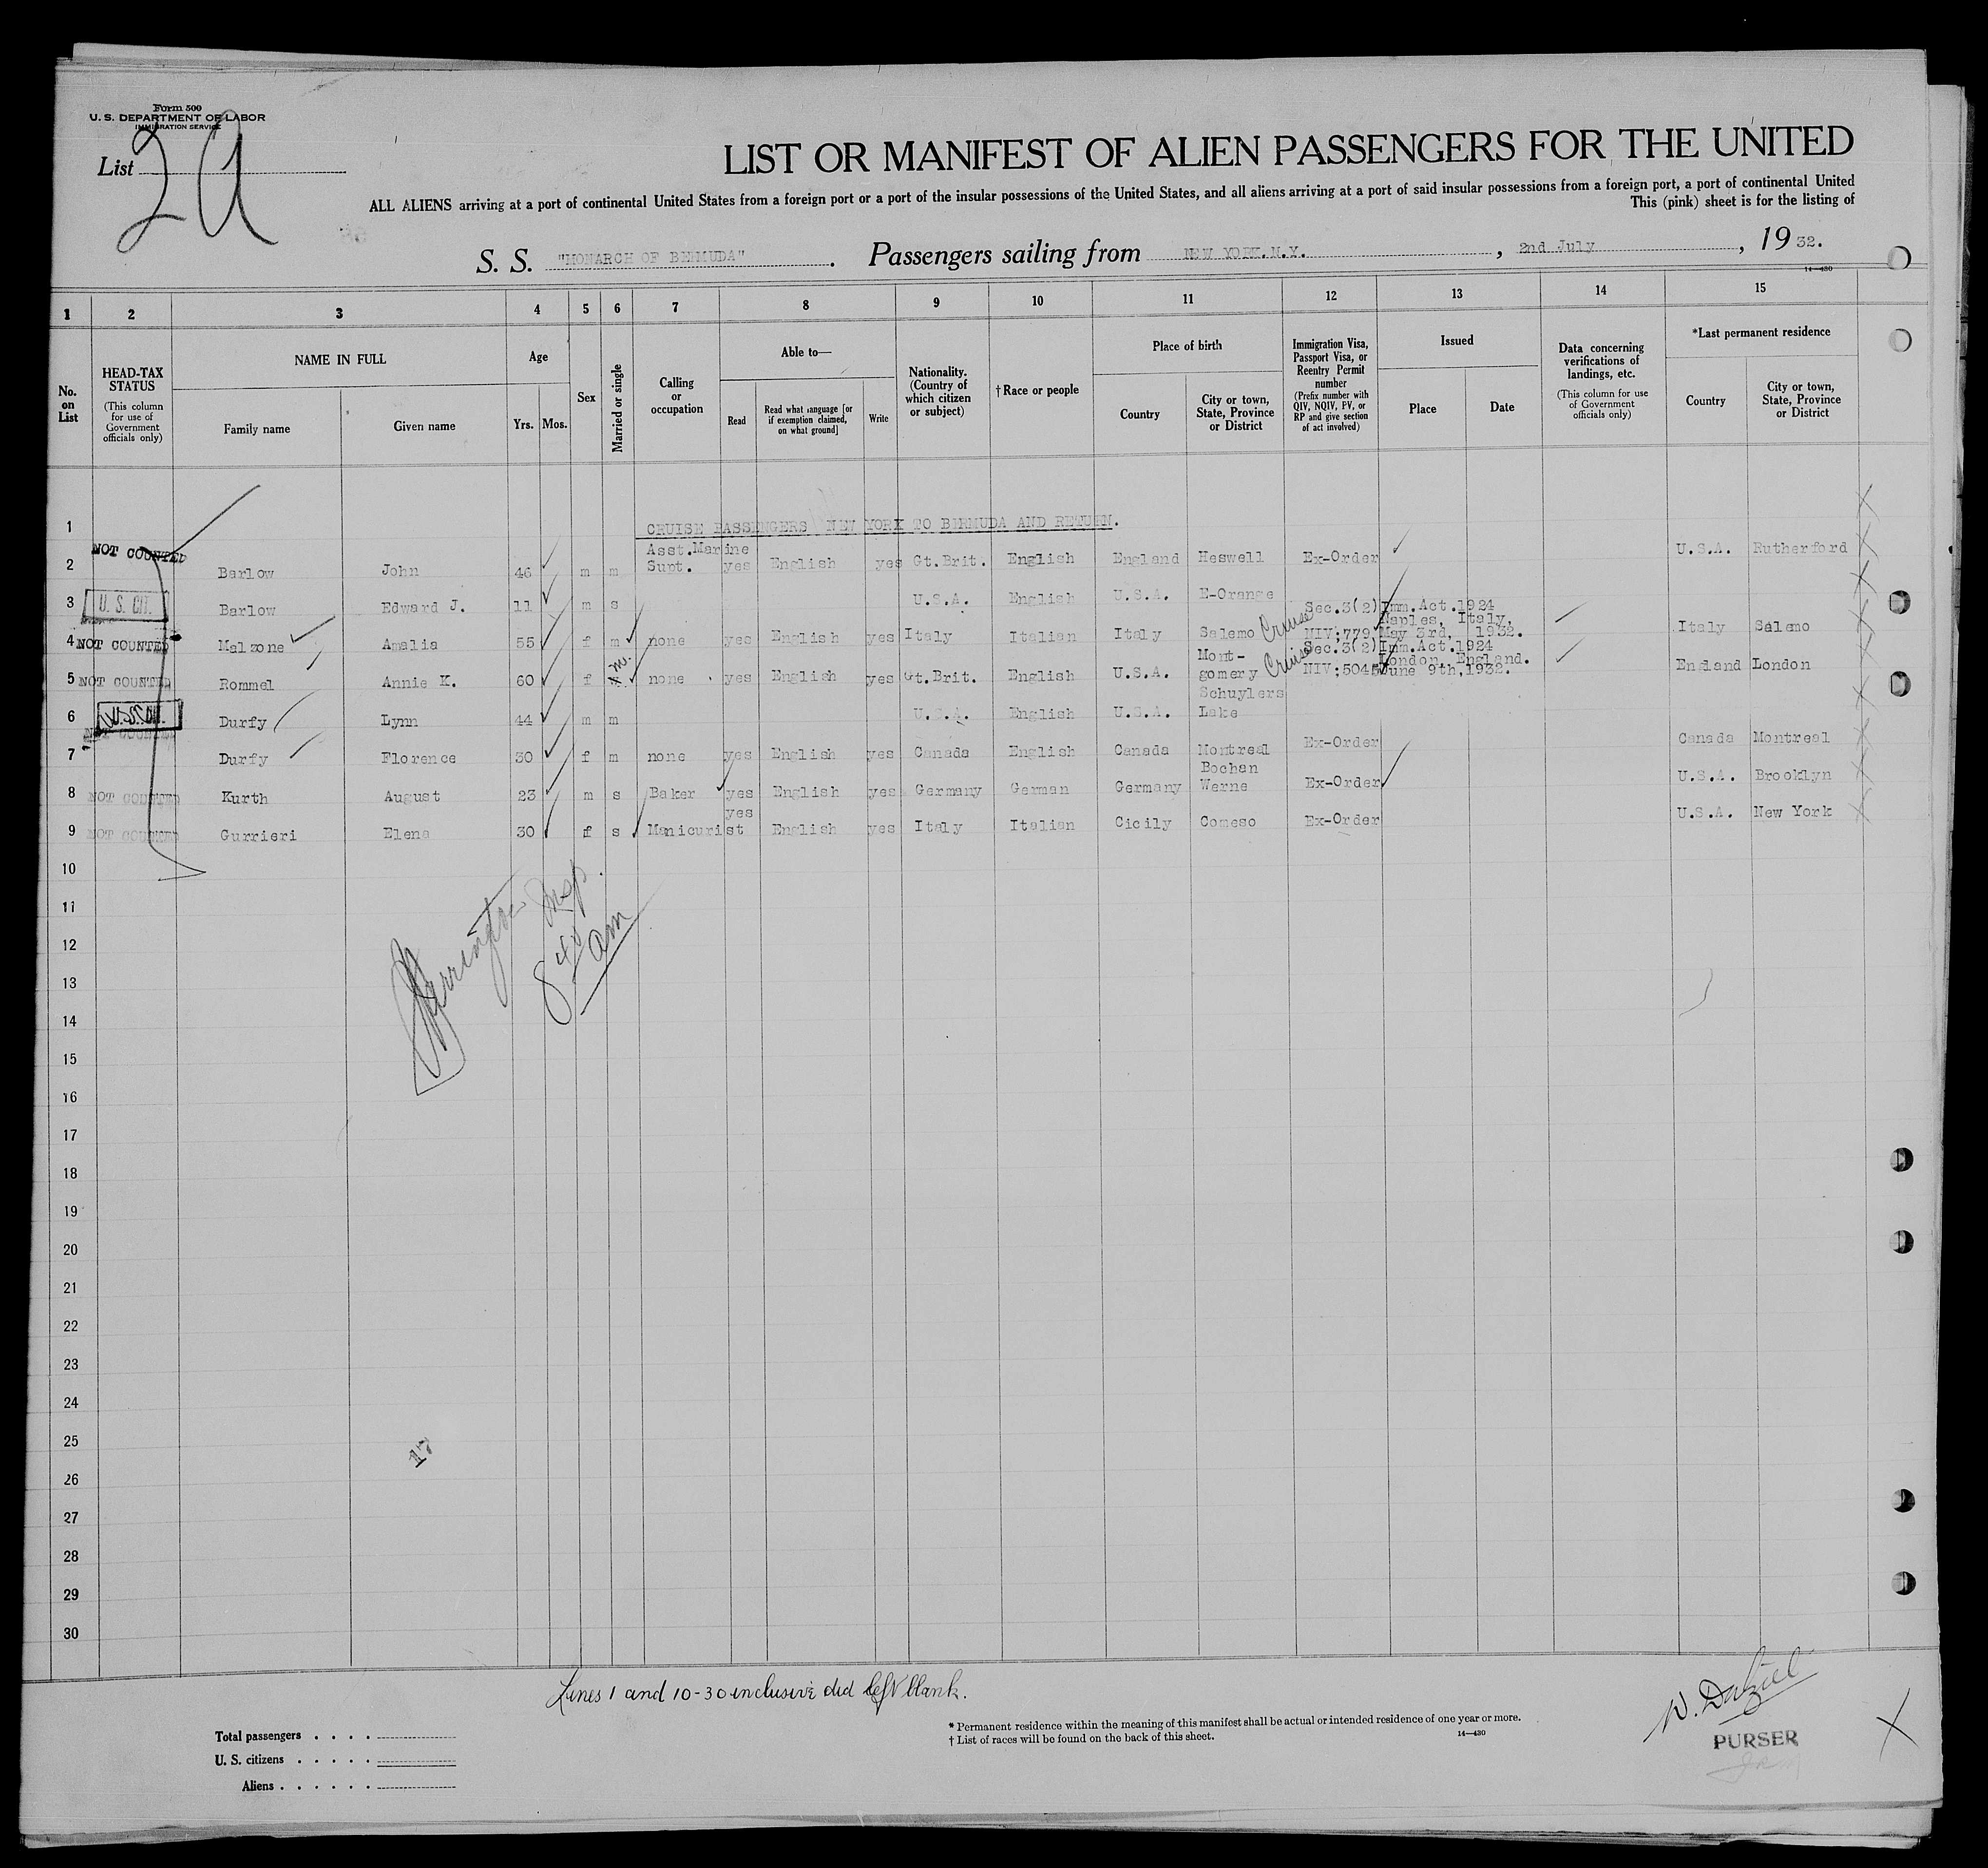 Form 500
U. S. DEPARTMENT OF LABOR
IMMIGRATION SERVICE
List 2A
LIST OR MANIFEST OF ALIEN PASSENGERS FOR THE UNITED
ALL ALIENS arriving at a port of continental United States from a foreign port or a port of the insular possessions of the United States, and all aliens arriving at a port of said insular possessions from a foreign port, a port of continental United
This (pink) sheet is for the listing of
S. S. "MONARCH OF BERMUDA". Passengers sailing from NEW YORK.N.Y., 2nd July, 1932.
14—430
1 2 3 4 5 6 7 8 9 10 11 12 13 14 15
No. on List
HEAD-TAX STATUS
(This column for use of Government officials only)
NAME IN FULL
Family name
Given name
Age
Yrs. Mos.
Sex
Married or single
Calling or occupation
Able to—
Read
Read what language [or if exemption claimed, on what ground]
Write
Nationality. (Country of which citizen or subject)
†Race or people
Place of birth
Country
City or town, State, Province or District
Immigration Visa, Passport Visa, or Reentry Permit number
(Prefix number with QIV, NQIV, PV, or RP and give section of act involved)
Issued
Place
Date
Data concerning verifications of landings, etc.
(This column for use of Government officials only)
*Last permanent residence
Country
City or town, State, Province or District
1 CRUISE PASSENGERS NEW YORK TO BERMUDA AND RETURN.
NOT COUNTED
2 Barlow John 46 m m Asst.Marine Supt. yes English yes Gt.Brit. English England Heswell Ex-Order U.S.A. Rutherford
3 U. S. CIT. Barlow Edward J. 11 m s U.S.A. English U.S.A. E-Orange
4 NOT COUNTED Malzone Amalia 55 f m none yes English yes Italy Italian Italy Salemo Cruise Sec.3(2) Imm.Act.1924 NIV;779, Naples, Italy, May 3rd, 1932. Italy Salemo
5 NOT COUNTED Rommel Annie K. 60 f m. none yes English yes Gt.Brit. English U.S.A. Mont-gomery Cruise Sec.3(2) Imm.Act.1924 NIV;5045 London, England. June 9th,1932. England London
6 U.S.CIT. Durfy Lynn 44 m m U.S.A. English U.S.A. Schuylers Lake
NOT COUNTED
7 Durfy Florence 30 f m none yes English yes Canada English Canada Montreal Ex-Order Canada Montreal
8 NOT COUNTED Kurth August 23 m s Baker yes English yes Germany German Germany Bochan Werne Ex-Order U.S.A. Brooklyn
9 NOT COUNTED Gurrieri Elena 30 f s Manicurist yes English yes Italy Italian Cicily Comeso Ex-Order U.S.A. New York
10
11
12
13
14
15
16
17
18
19
20
21
22
23
24
25
26
27
28
29
30
Insp.
8 40 am
17
Lines 1 and 10-30 inclusive did left blank.
Total passengers
U. S. citizens
Aliens
* Permanent residence within the meaning of this manifest shall be actual or intended residence of one year or more.
† List of races will be found on the back of this sheet.
14—430
PURSER